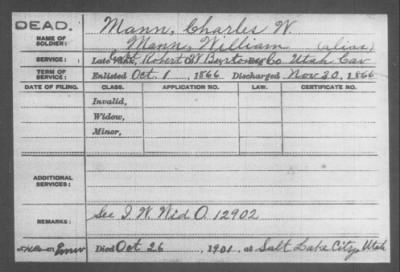 DEAD.
NAME OF SOLDIER:
Mann, Charles W.
Mann, William (alias)
SERVICE:
Late Capt. Robert W Burton's Co Utah Cav
TERM OF SERVICE:
Enlisted Oct. 1 1866 Discharged Nov 30, 1866
DATE OF FILING. CLASS. APPLICATION NO. LAW. CERTIFICATE NO.
Invalid,
Widow,
Minor,
ADDITIONAL SERVICES:
REMARKS:
See I. W. Wid O. 12902
Died Oct 26 1901, at Salt Lake City, Utah